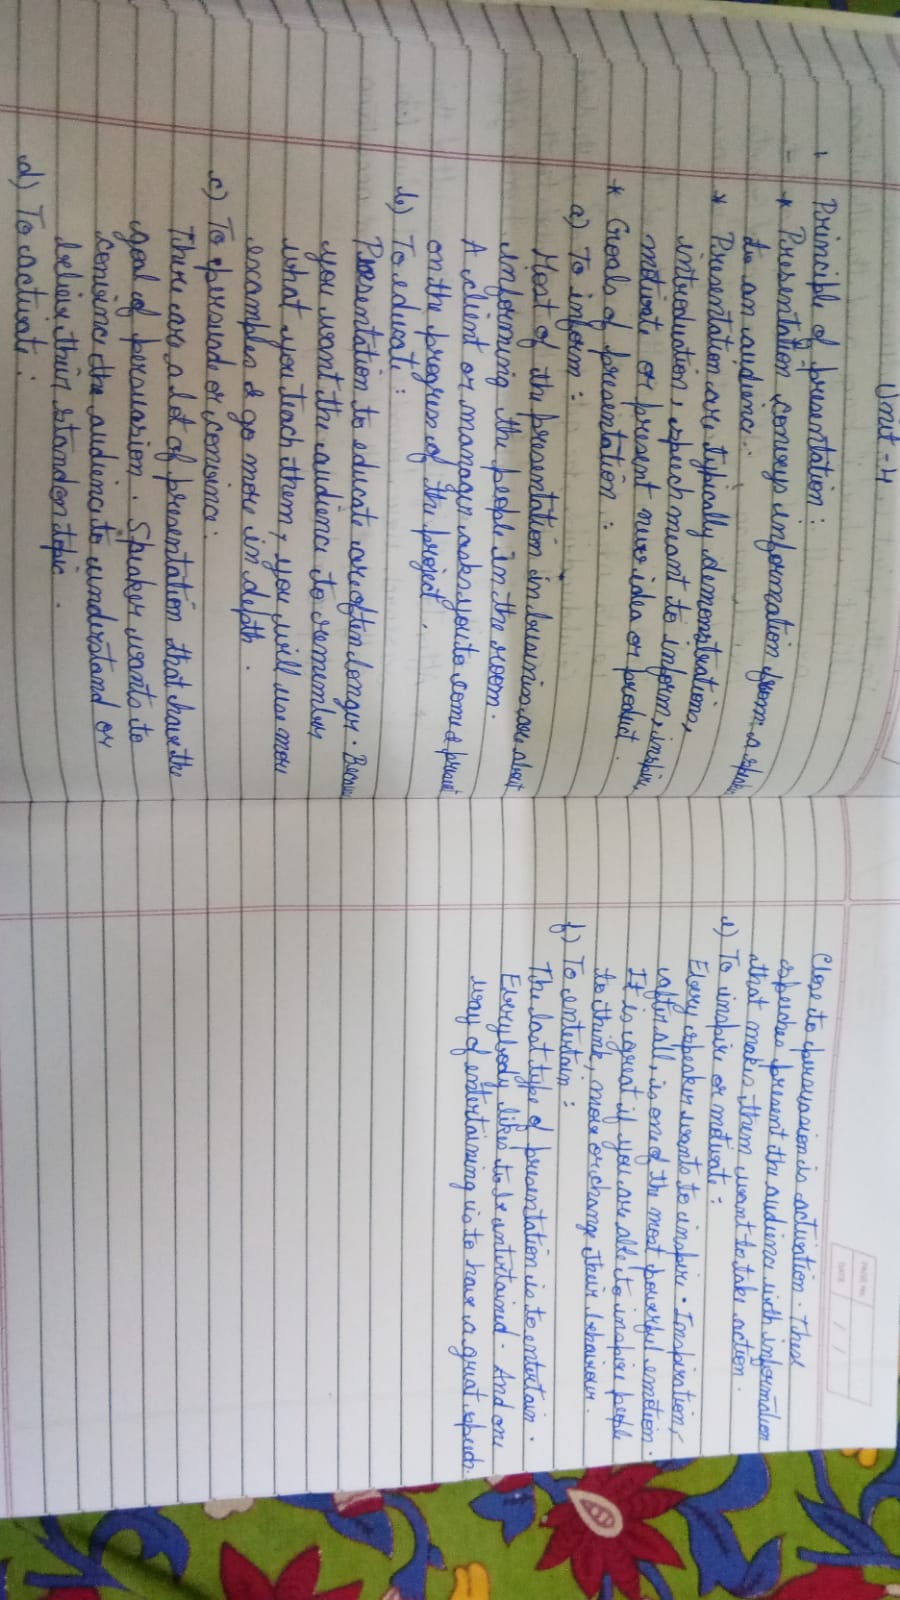 Unit - 4
1. Principle of presentation :
- * Presentation conveys information from a speaker
to an audience.
* Presentation are typically demonstrations,
introduction, speech meant to inform, inspire,
motivate or present new idea or product.
* Goals of presentation :
a) To inform :
Most of the presentation in business are about
informing the people in the room.
A client or manager asks you to come & present
on the progress of the project.
b) To educate :
Presentation to educate are often longer. Because
you want the audience to remember
what you teach them, you will use more
examples & go more in depth.
c) To persuade or convince :
There are a lot of presentation that have the
goal of persuasion. Speaker wants to
convince the audience to understand or
believe their stand on topic.
d) To activate :
PAGE No.
DATE / /
Close to persuasion is activation. These
speeches present the audience with information
that makes them want to take action.
e) To inspire or motivate :
Every speaker wants to inspire. Inspiration,
after all, is one of the most powerful emotion.
It is great if you are able to inspire people
to think, move or change their behaviour.
f) To entertain :
The last type of presentation is to entertain.
Everybody likes to be entertained. And one
way of entertaining is to have a great speech.